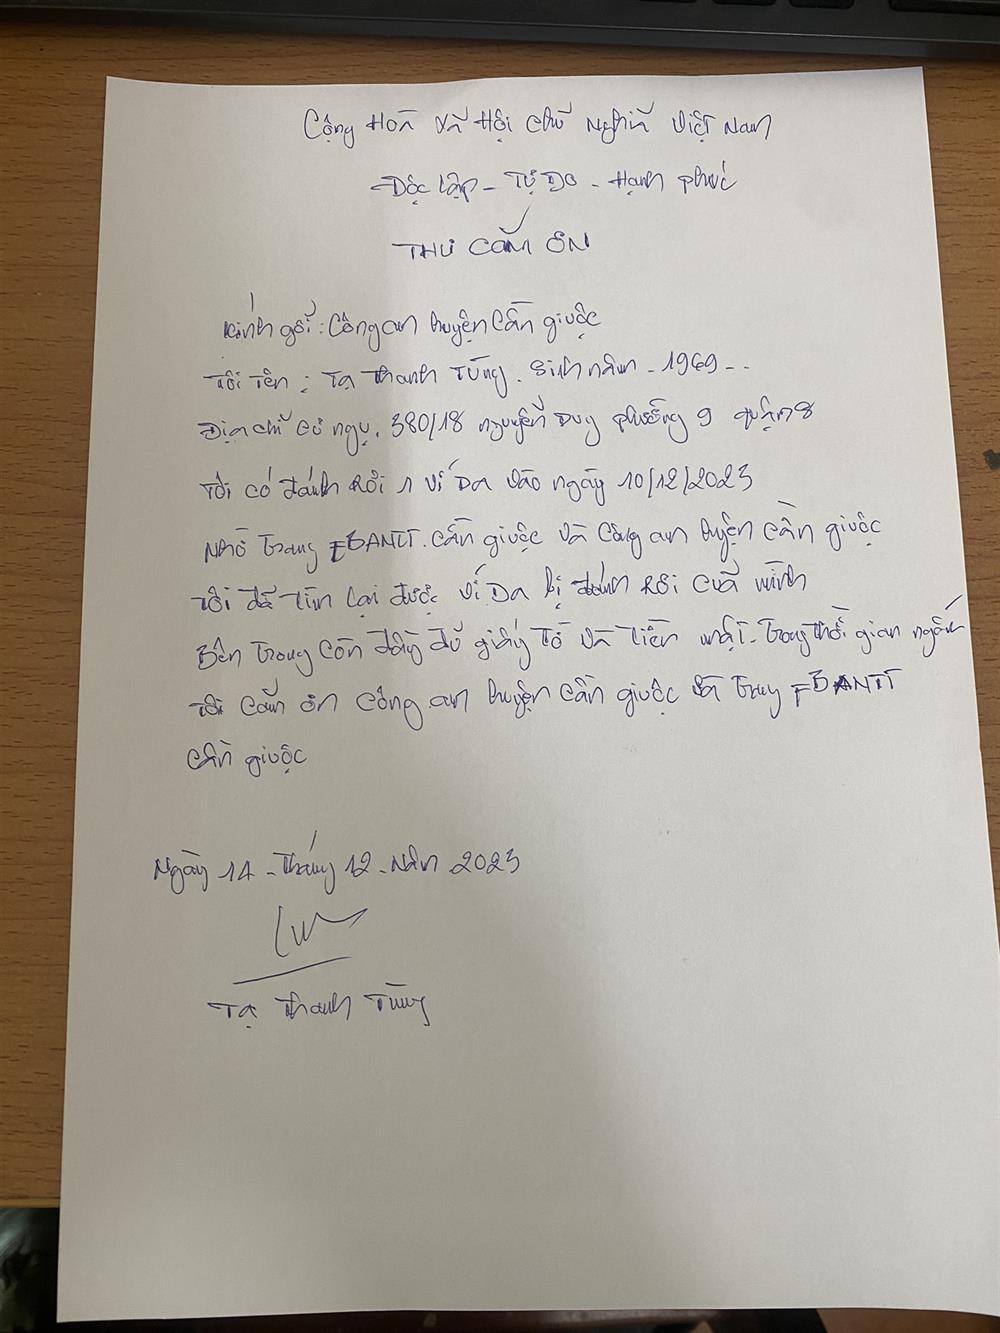 Cộng Hoà Xã Hội Chủ Nghĩa Việt Nam
Độc lập - Tự Do - Hạnh phúc
THƯ CẢM ƠN
Kính gởi: Công an huyện Cần giuộc
Tôi Tên : Tạ Thanh Tùng. Sinh năm - 1969 - .
Địa chỉ cư ngụ. 380/18 nguyễn Duy phường 9 quận 8
Tôi có đánh Rơi 1 ví Da vào ngày 10/12/2023
Nhờ Trang FBANTT. Cần giuộc và Công an huyện Cần giuộc
Tôi đã tìm lại được ví Da bị đánh Rơi của mình
Bên trong Còn đầy đủ giấy Tờ và tiền mặt. Trong thời gian ngắn
Tôi cảm ơn Công an huyện Cần giuộc và Trang FBANTT
Cần giuộc
Ngày 14 - tháng 12 - Năm 2023
Tạ Thanh Tùng